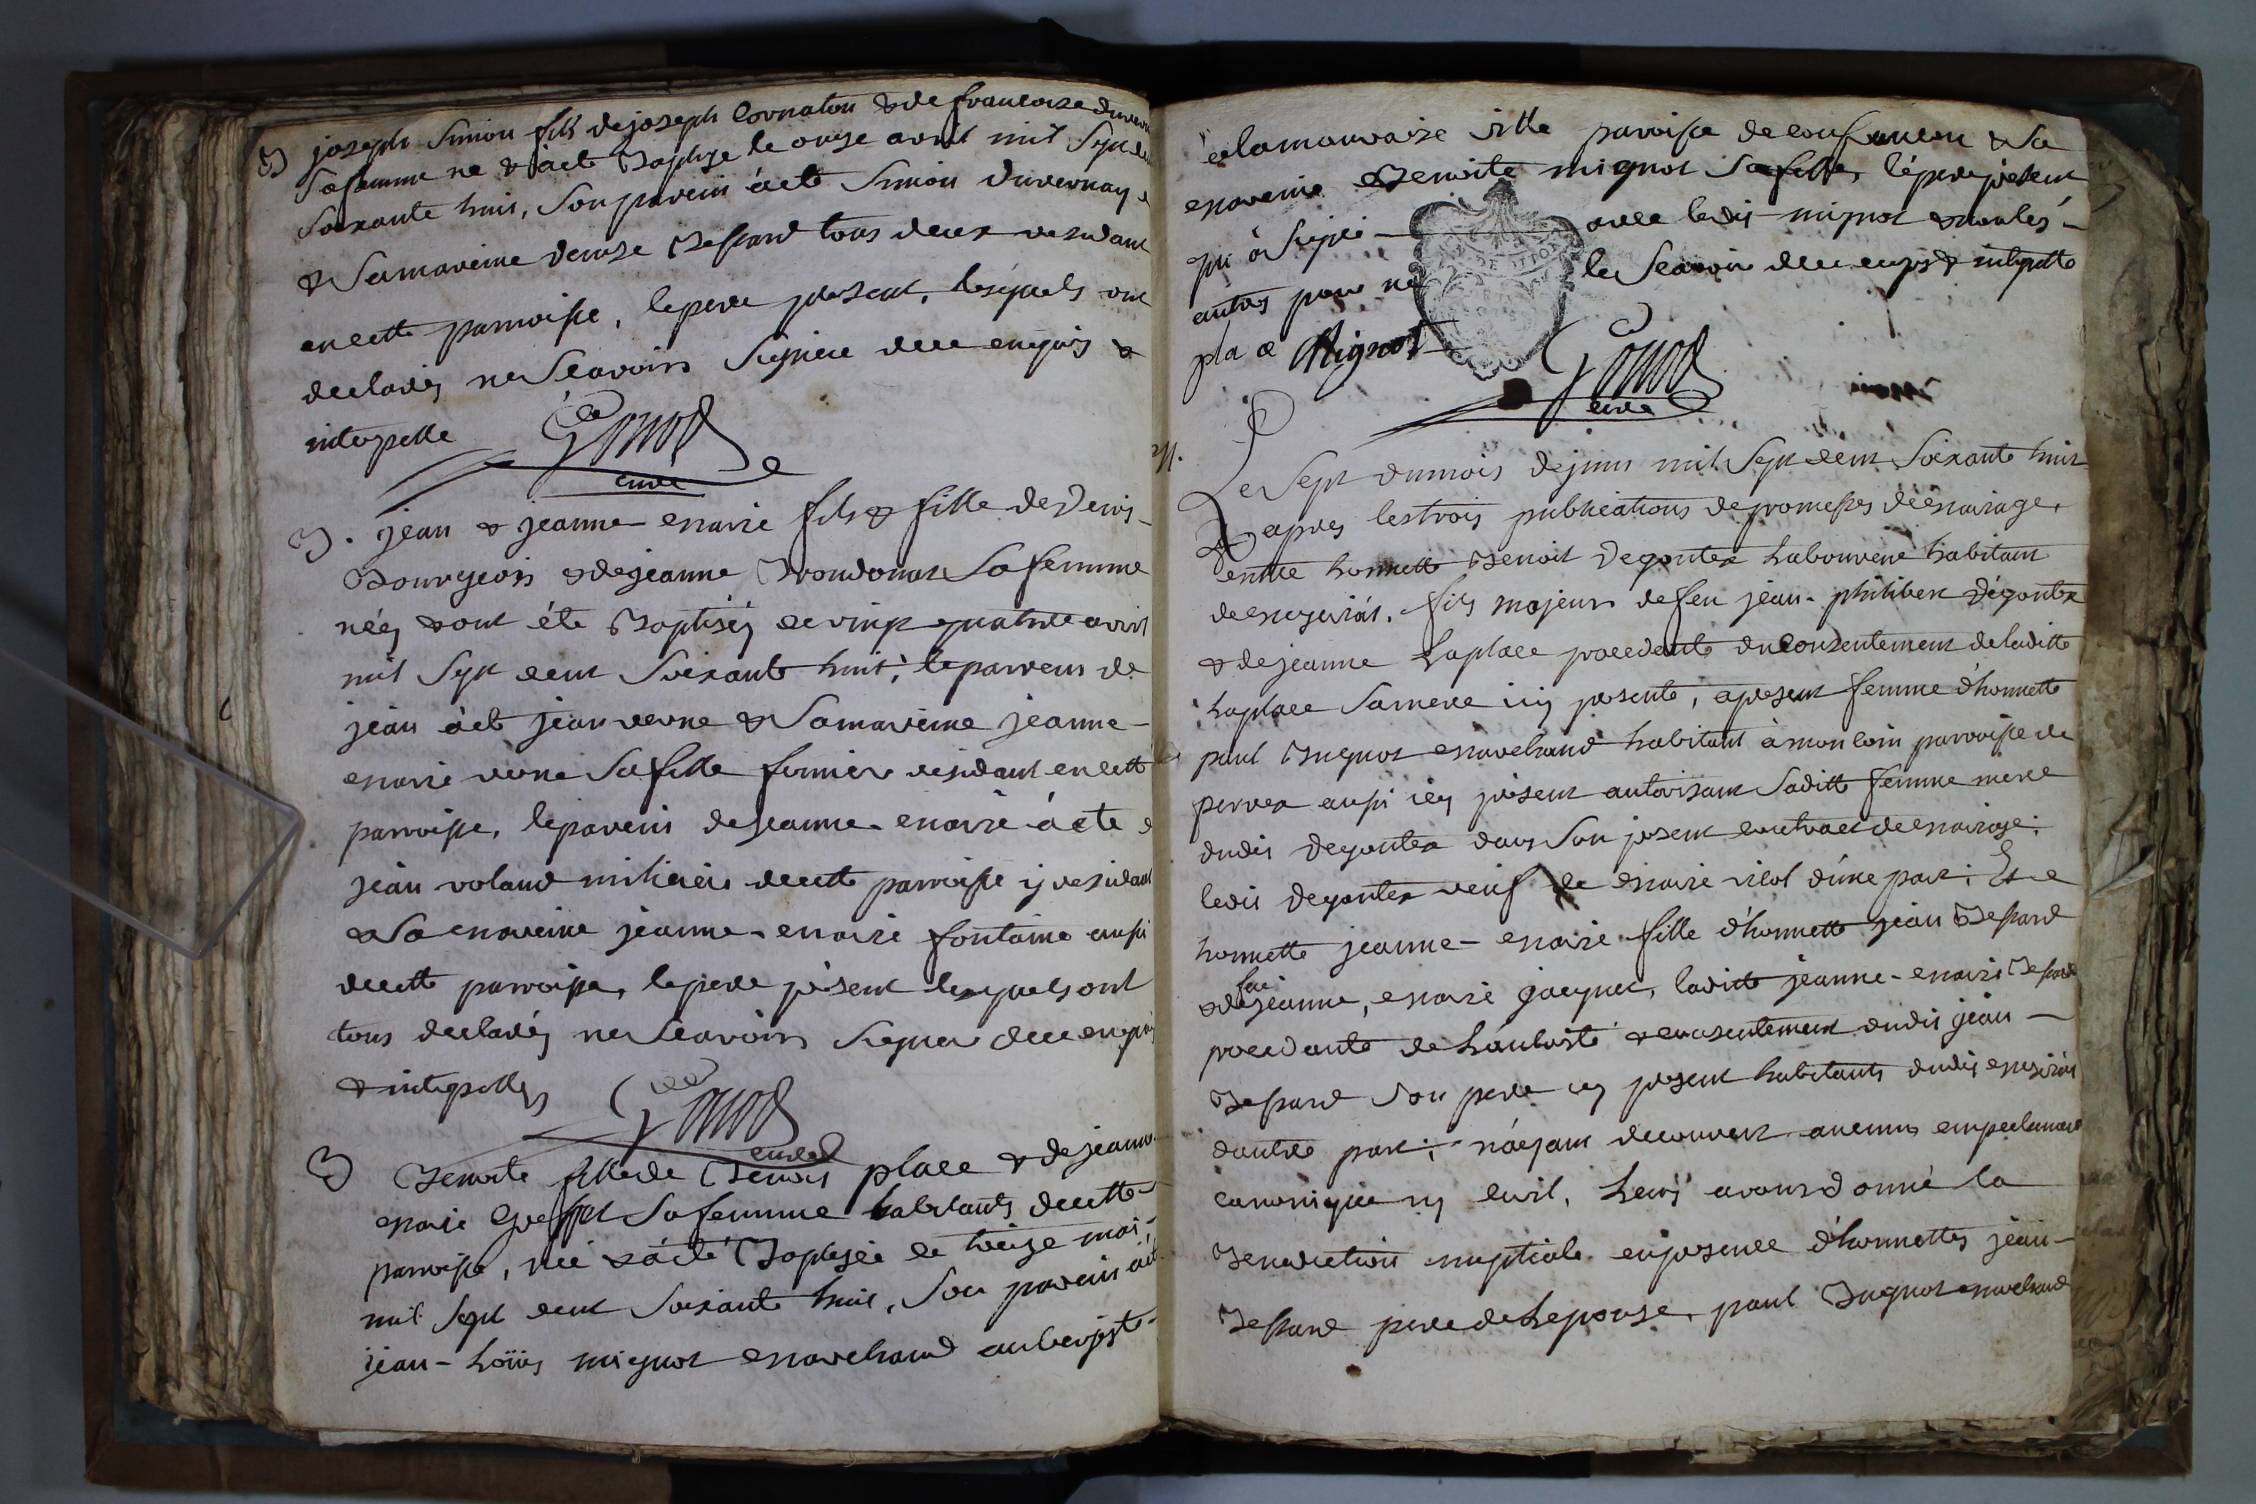 B joseph Simon fils de joseph Cornaton & de francoise duvern
sa femme né & a été Baptisé le onze avril mil sept cent
soixante huit, son parrein a été Simon duvernay &
& sa mareine denise Bessard tous deux residant
en cette parroisse, le pere present, lesquels ont
declarés ne scavoirs signer de ce enquis &
interpellé
Gonod
curé
B. jean & jeanne marie fils & fille de Denis
Bourgeois & de jeanne Brondonat sa femme
nés & ont été Baptisés le vingt quatre avril
mil sept cent soixante huit, le parrein de
jean a été jean verne & sa mareine jeanne
marie verne sa fille fermier residant en cette
parroisse, le parein de jeanne marie a été
jean voland milicien de cette parroisse y residant
& sa mareine jeanne marie fontaine aussi
de cette parroisse, le pere present lesquels ont
tous declarés ne scavoirs signer de ce enquis
& interpellés
Gonod
curé
B Benoite fille de Benoit place & de jeanne
marie Goeffet sa femme habitants de cette
parroisse, née & a été Baptisée le treize mai
mil sept cent soixante huit, son parein a été
jean-Loüis mignot marchand aubergiste
a la mauvaise ville paroisse de confrancon & sa
mareine Benoite mignot sa fille, le pere present
qui a signé avec ledit mignot & non les
autres pour ne le scavoir de ce enquis & interpellé
place Mignot
Gonod
curé
M.
Le sept du mois de juin mil sept cent soixante huit
& apres les trois publications de promesses de mariage,
entre honnette Benoit degoutex Laboureur habitant
de mesiriat, fils majeur de feu jean-philibert dégoutex
& de jeanne Laplace procedante du consentement de laditte
Laplace sa mere icy presente, apresent femme d'honnette
paul Buguot marchand habitant à monloin parroisse de
perrex aussi icy present autorisant saditte femme mere
dudit degoutex dans son present contract de mariage;
ledit degoutex veuf de marie viol d'une part; Et
honnette jeanne-marie fille d'honnette jean Bessard
& de feue jeanne, marie jacquet, laditte jeanne-marie Bessard
procedante de L'authorité & consentement dudit jean
Bessard son pere icy present habitants dudit mesiriat
d'autre part; n'ayant decouvert aucuns empechement
canonique ny civil, Leurs avons donné la
Benediction nuptiale en presence d'honnettes jean
Bessard pere de Lepouse, paul Buguot marchand